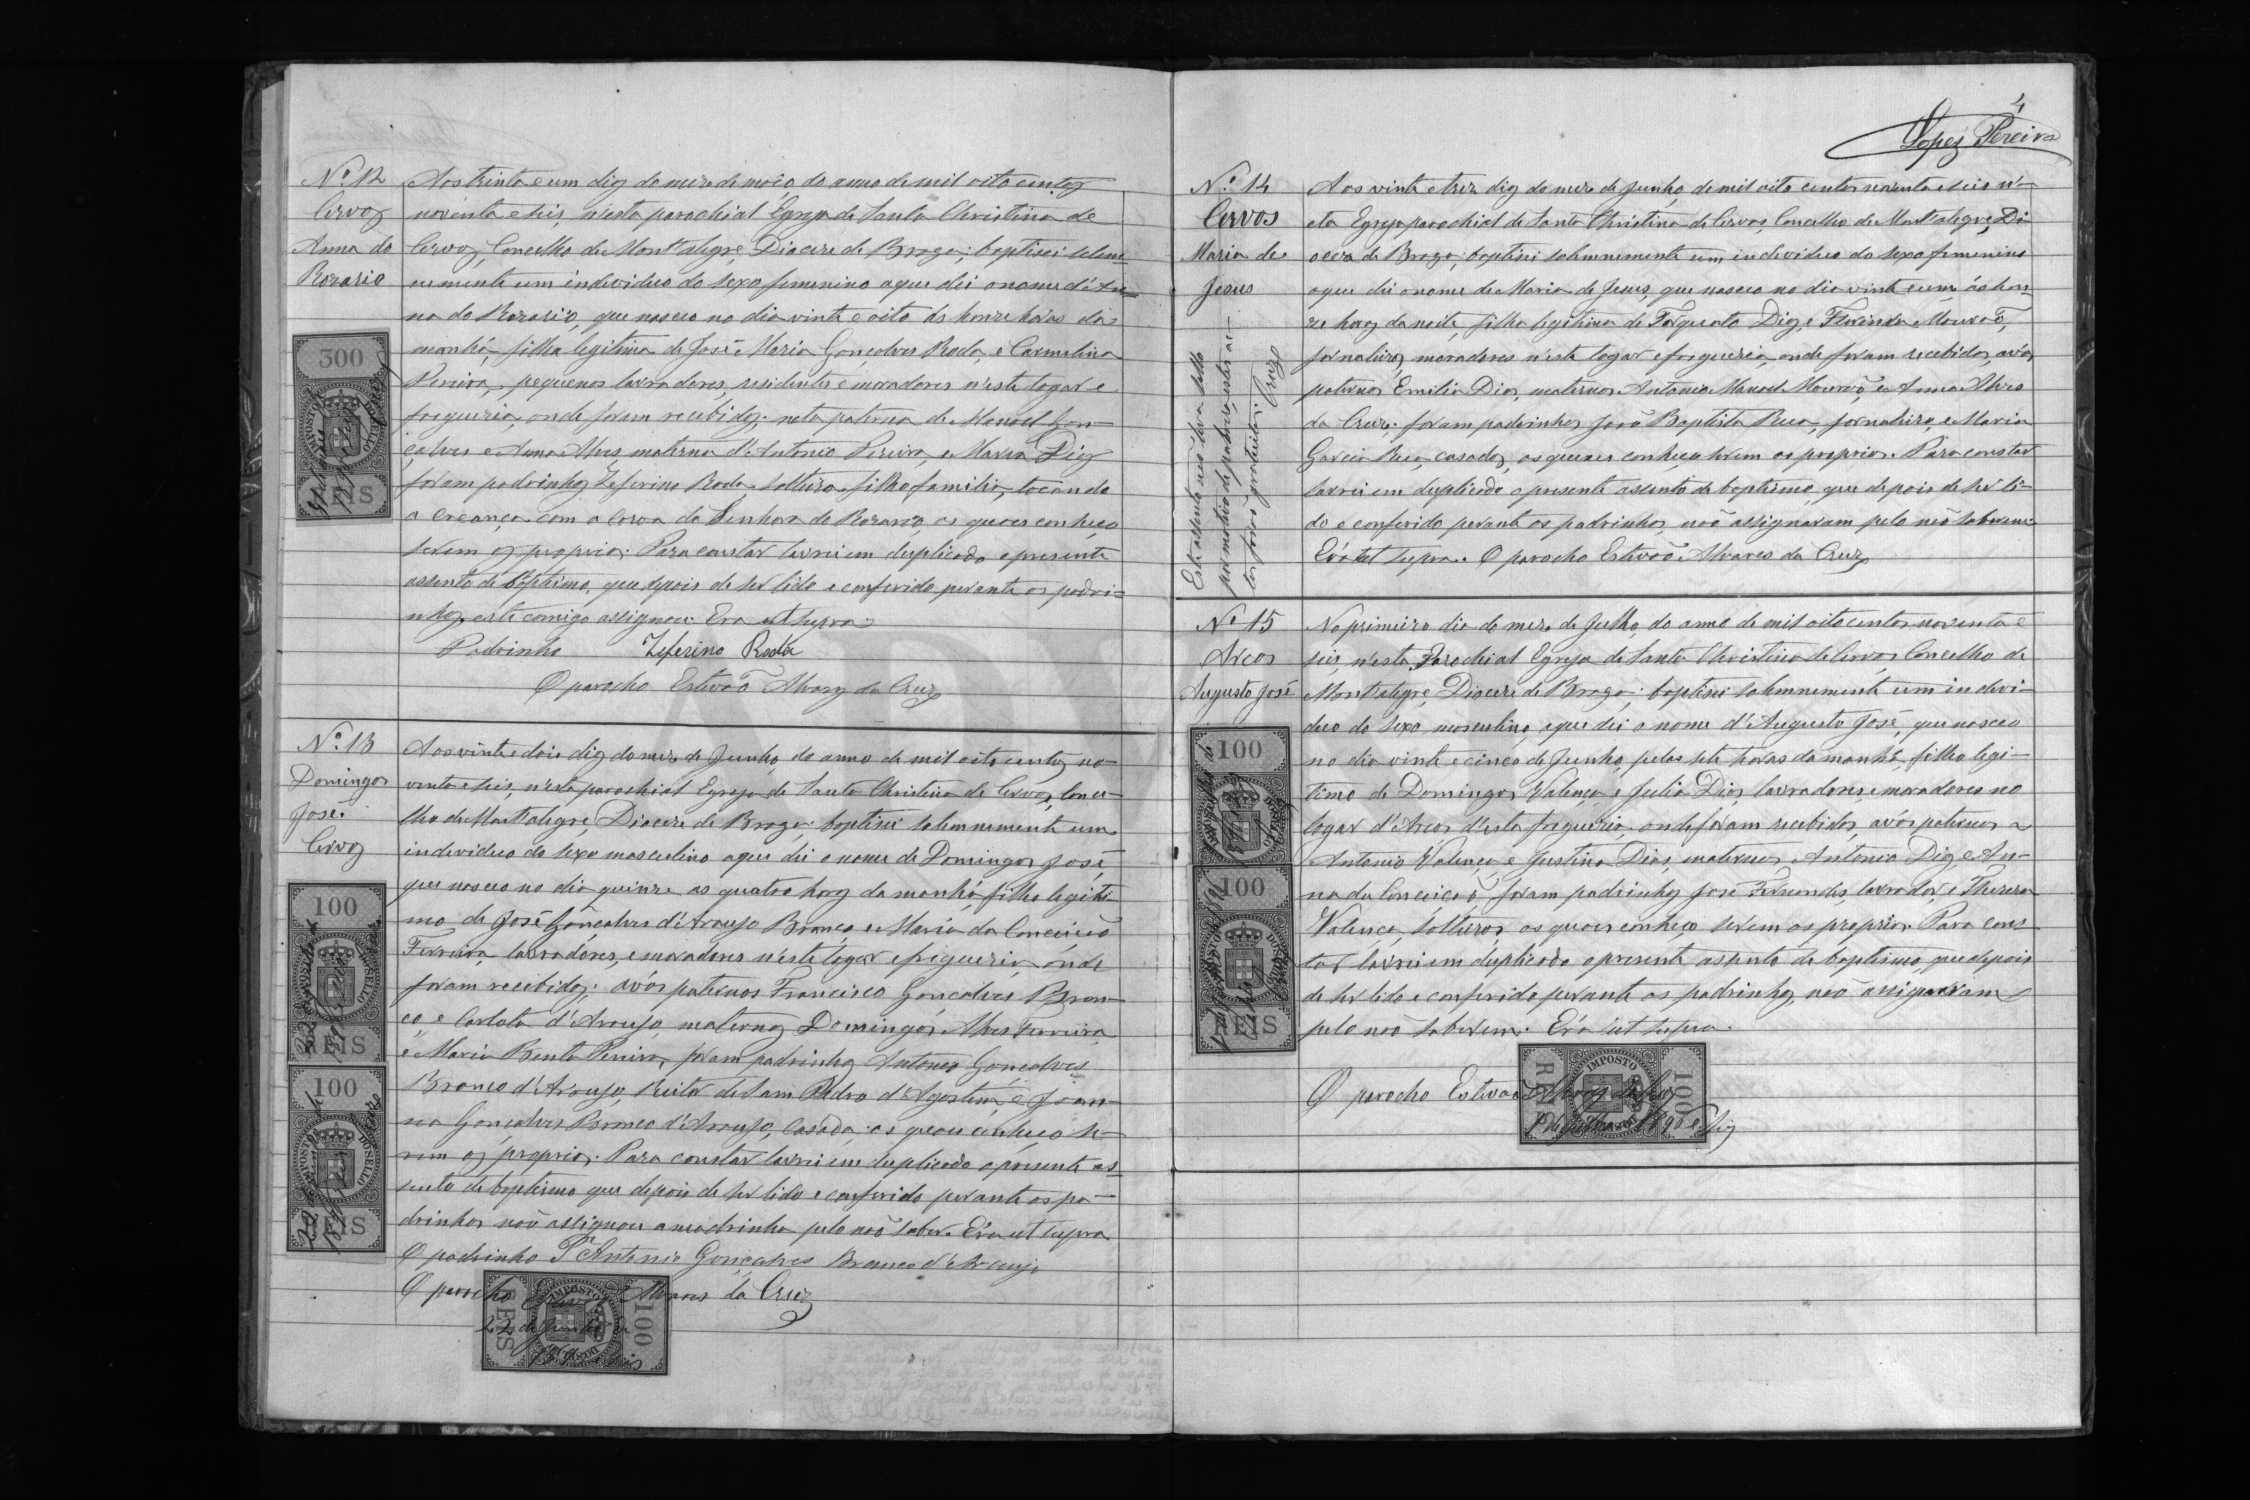 Nº 12
Cervos
Anna do
Rozario
Aos trinta e um dias do mez de maio do anno de mil oito centos
noventa e seis, n'esta parochial Egreja de Santa Christina de
Cervos, Concelho de Mont'alegre, Diocese de Braga; baptisei solem-
nemente um individuo do sexo femenino a que dei o nome d'An-
na do Rozario, que nasceu no dia vinte e oito ás honze horas da
manhã, filha legitima de José Maria Gonçalves Roda, e Carmelina
Pereira, pequenos lavradores, residentes e moradores n'este logar e
freguezia, onde foram recebidos; neta paterna de Manoel Gon-
çalves e Anna Alves materna d'Antonio Pereira, e Maria Dias
foram padrinhos Zeferino Roda, solteiro, filho familia, tocando
a creança com a coroa da Senhora do Rozario, os quaes conheço
serem os proprios. Para constar lavrei em duplicado o presente
assento de baptismo, que depois de ser lido e conferido perante os padri-
nhos, este comigo assignou. Era ut supra.
Padrinho Zeferino Roda
O parocho Estevaõ Alvares da Cruz
300
IMPOSTO DO SELLO
REIS
Nº 13
Domingos
José
Cervos
Aos vinte e dois dias do mez de Junho, do anno de mil oito centos no-
venta e seis, n'esta parochial Egreja de Santa Christina de Cervos, Conce-
lho de Mont'alegre, Diocese de Braga; baptisei solemnemente um
individuo do sexo masculino a que dei o nome de Domingos José,
que nasceu no dia quinze as quatro horas da manhã, filho legiti-
mo de José Gonçalves d'Araujo Branco, e Maria da Conceição
Ferreira, lavradores, e moradores n'este logar e freguezia, onde
foram recebidos; avós paternos Francisco Gonçalves Bran-
co, e Carlota d'Araujo, maternos Domingos Alves Ferreira,
e Maria Benta Pereira, foram padrinhos Antonio Gonçalves
Branco d'Araujo, Reitor de Sam Pedro d'Agostem, e Joan-
na Gonçalves Branco d'Araujo, casada; os quaes conheço se-
rem os proprios. Para constar lavrei em duplicado o presente as-
sento de baptismo que depois de ser lido e conferido perante os pa-
drinhos naõ assignou a madrinha pelo naõ saber. Era ut supra
O padrinho Pe Antonio Gonçalves Branco d'Araujo
O parocho Estevaõ Alvares da Cruz
100
IMPOSTO DO SELLO
REIS
100
IMPOSTO DO SELLO
REIS
100
IMPOSTO DO SELLO
REIS
22 de Junho de
4
Lopes Pereira
Nº 14
Cervos
Maria de
Jesus
Este assento não leva sello
por motivo de pobreza
Cruz
Aos vinte e trez dias do mez de Junho, de mil oito centos noventa e seis n'-
esta Egreja parochial de Santa Christina de Cervos, Concelho de Mont'alegre, Di-
ocese de Braga; baptisei solemnemente um individuo do sexo femenino
a que dei o nome de Maria de Jesus, que nasceu no dia vinte e um ás hon-
ze horas da noite, filha legitima de Torquato Dias, e Florinda Mouraõ,
jornaleiros, moradores n'este logar e freguezia, onde foram recebidos, avós
paternos Emilia Dias, maternos Antonio Manoel Mouraõ, e Anna Alves
da Cruz; foram padrinhos João Baptista Reca, jornaleiro, e Maria
Garcia Reca, casados, os quaes conheço serem os proprios. Para constar
lavrei em duplicado o presente assento de baptismo, que depois de ser li-
do e conferido perante os padrinhos, naõ assignaram pelo naõ saberem.
Era ut supra. O parocho Estevaõ Alvares da Cruz
Nº 15
Arcos
Augusto José
No primeiro dia do mez de Julho, do anno de mil oito centos noventa e
seis, n'esta Parochial Egreja de Santa Christina de Cervos, Concelho de
Mont'alegre, Diocese de Braga; baptisei solemnemente um indivi-
duo do sexo masculino, a que dei o nome d'Augusto José, que nasceu
no dia vinte e cinco de Junho, pelas sete horas da manhã, filho legi-
timo de Domingos Valença, e Julia Dias, lavradores, e moradores no
logar d'Arcos d'esta freguezia, onde foram recebidos, avós paternos
Antonio Valença, e Justina Dias, maternos Antonio Dias, e An-
na da Conceição, foram padrinhos José Fernandes, lavrador, e Thereza
Valença, solteiros, os quaes conheço serem os proprios. Para cons-
tar lavrei em duplicado o presente assento de baptismo, que depois
de ser lido e conferido perante os padrinhos, naõ assignaram
pelo naõ saberem. Era ut supra.
O parocho Estevaõ Alvares da Cruz
100
IMPOSTO DO SELLO
100
IMPOSTO DO SELLO
REIS
100
IMPOSTO
REIS